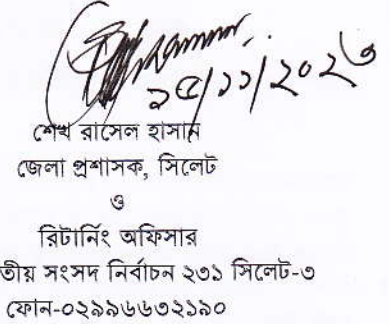 ১৫/১১/২০২৩
শেখ রাসেল হাসান
জেলা প্রশাসক, সিলেট
ও
রিটার্নিং অফিসার
তীয় সংসদ নির্বাচন ২৩১ সিলেট-৩
ফোন-০২৯৯৬৬৩২১৯০